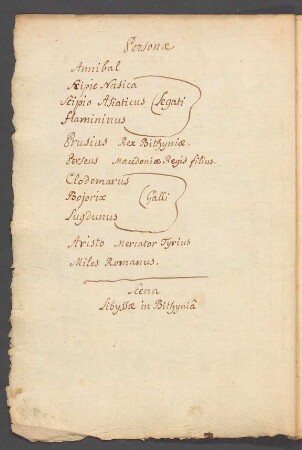 Personæ
Annibal
Scipio Nasica
Scipio Asiaticus } Legati
Flamininus
Prusius Rex Bithyniæ.
Perseus Macedoniæ Regis filius.
Clodomarus
Bojorix } Galli
Lugdunus
Aristo Mercator Tyrius
Miles Romanus.
Scena
Libyssæ in Bithyniâ